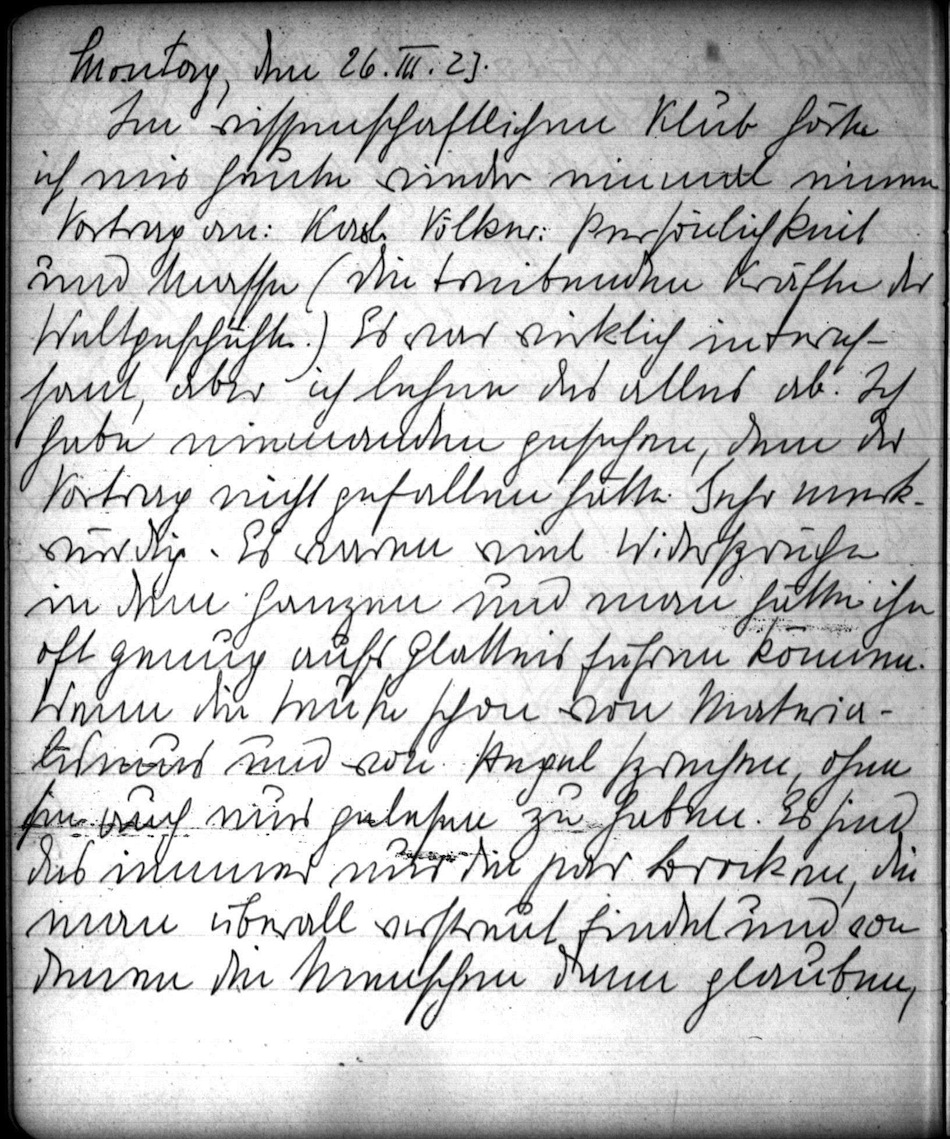 Montag, den 26.III.23.
Im wissenschaftlichen Klub hörte
ich mir heute wieder einmal einen
Vortrag an: Karl Völker: Persönlichkeit
und Masse (die treibenden Kräfte der
Weltgeschichte.) Es war wirklich interes-
sant, aber ich lehne das alles ab. Ich
habe niemanden gesehen, dem der
Vortrag nicht gefallen hätte. Sehr merk-
würdig. Es waren viel Widersprüche
in dem Ganzen und man hätte ihn
oft genug aufs Glatteis führen können.
Wenn die Leute schon von Materia-
lismus und von Hegel sprechen, ohne
sie auch nur gelesen zu haben. Es sind
das immer nur die paar Brocken, die
man überall verstreut findet und von
denen die Menschen dann glauben,